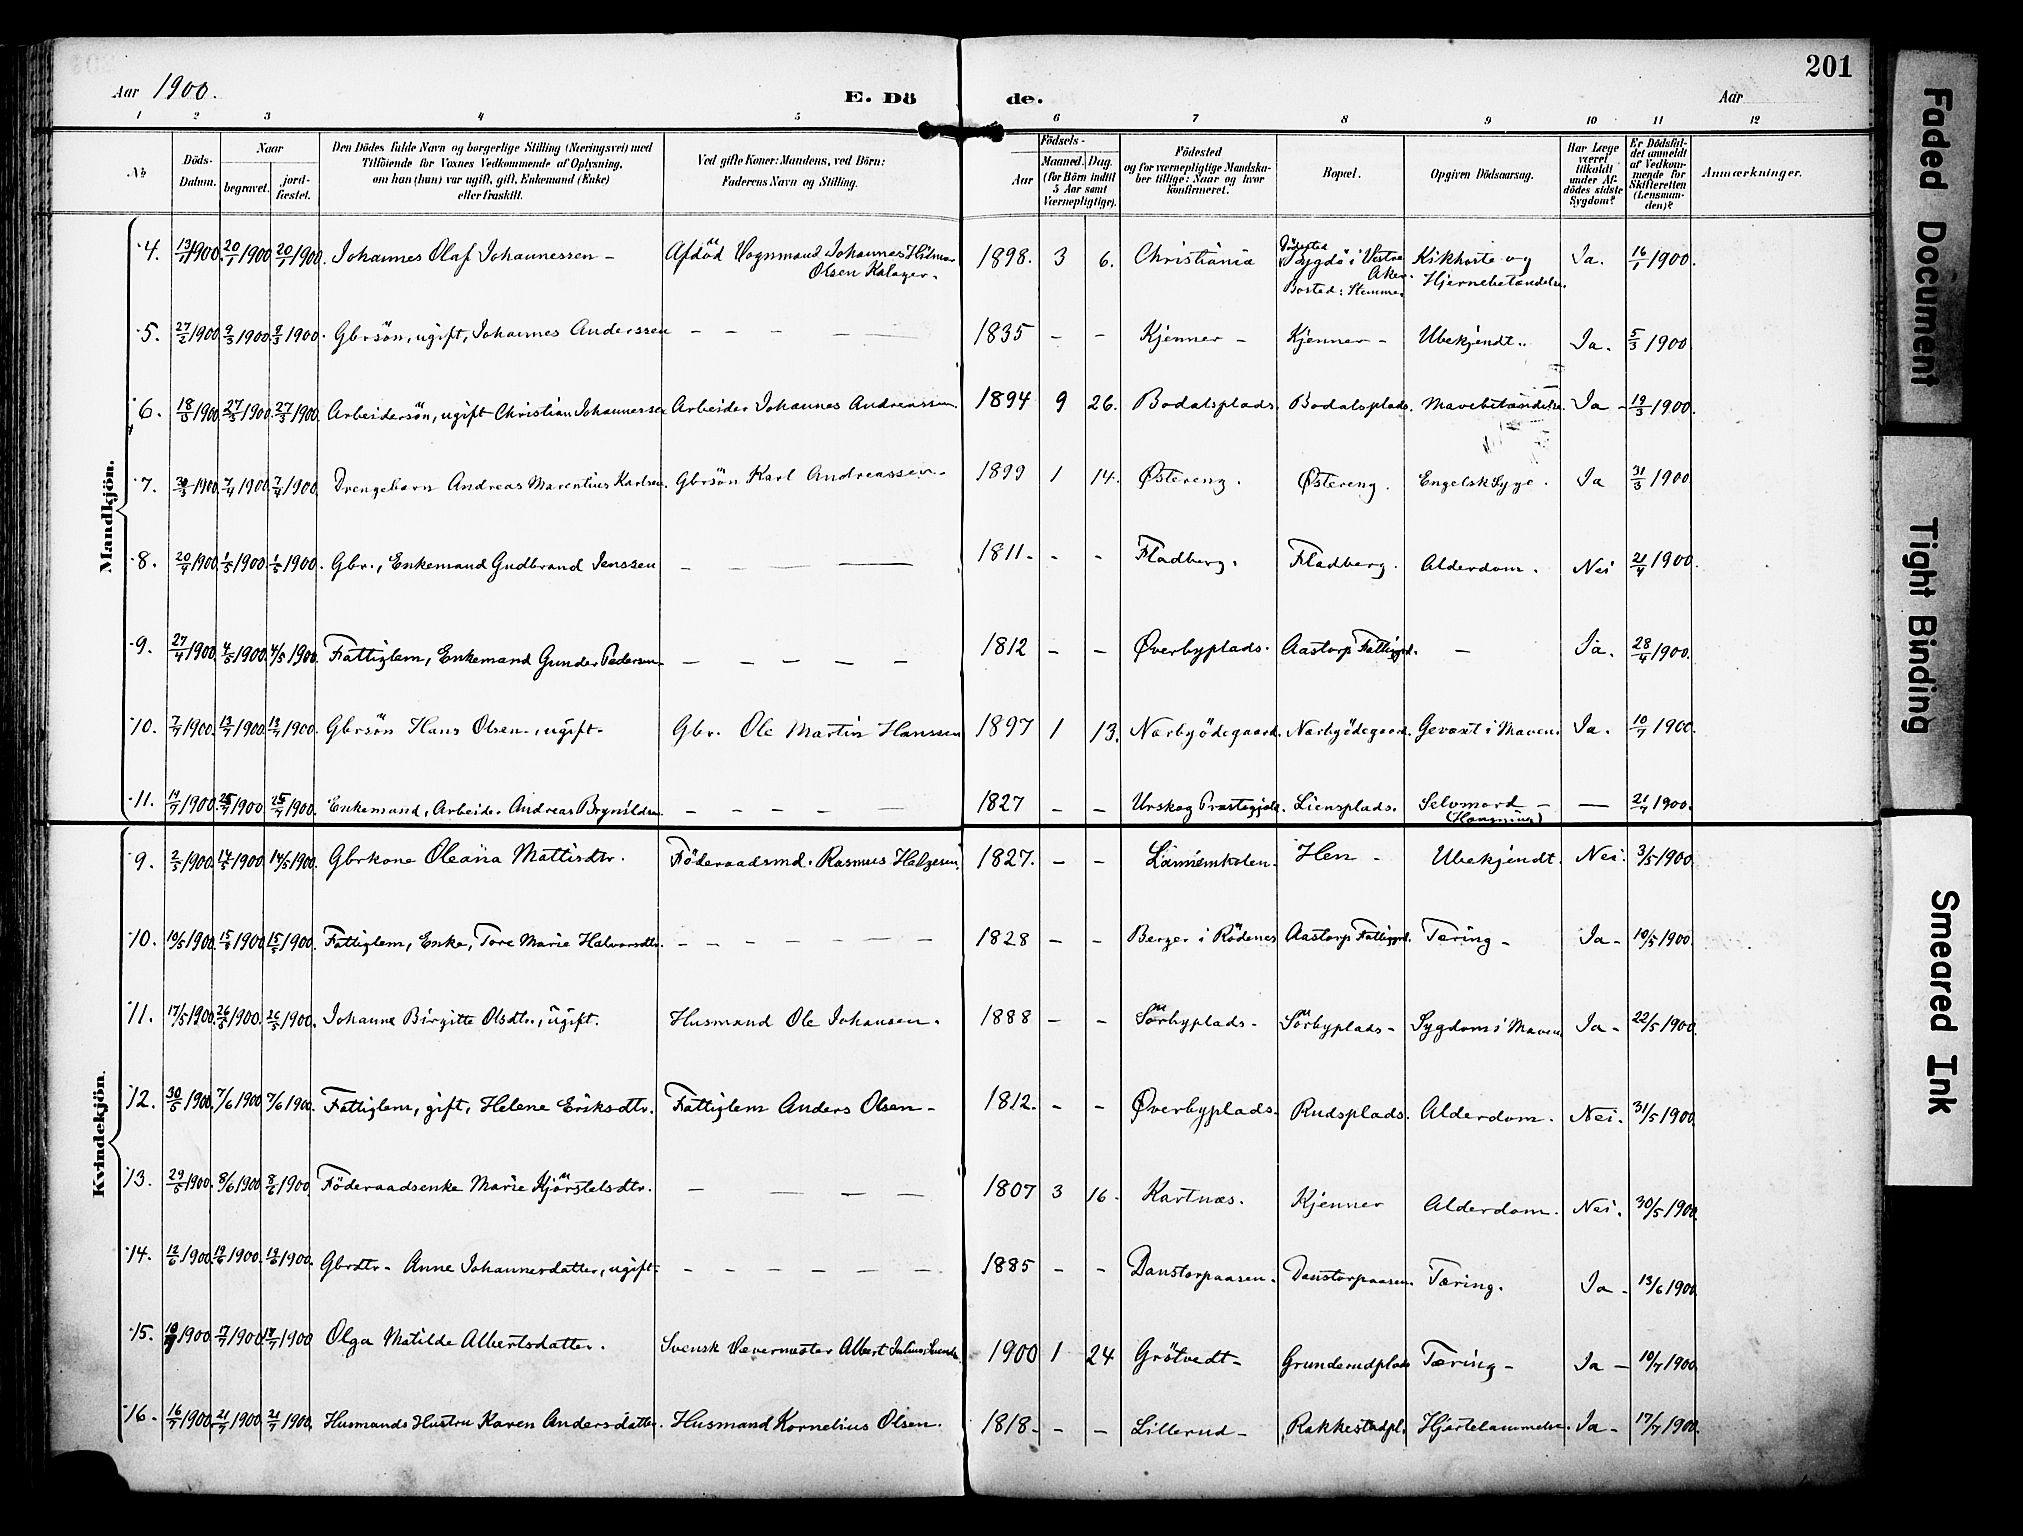 201
Aar 1900.
E. Dö
de.
Aar
1 2 3 4 5 6 7 8 9 10 11 12
No
Döds-
Datum.
Naar
begravet.
jord-
fæstet.
Den Dödes fulde Navn og borgerlige Stilling (Næringsvei) med
Tilföiende for Voxnes Vedkommende af Oplysning,
om han (hun) var ugift, gift, Enkemand (Enke)
eller fraskilt.
Ved gifte Koner: Mandens, ved Börn:
Faderens Navn og Stilling.
Födsels-
Aar
Maaned. Dag.
(for Börn indtil
5 Aar samt
Værnepligtige).
Födested
og for værnepligtige Mandska-
ber tillige: Naar og hvor
konfirmeret.
Bopæl.
Opgiven Dödsaarsag.
Har Læge
været
tilkaldt
under Af-
dödes sidste
Sygdom?
Er Dödsfal-
det anmeldt
af Vedkom-
mende for
Skifteretten
(Lensman-
den)?
Anmærkninger.
Mandkjön.
4. 13/1 1900. 20/1 1900 20/1 1900. Johannes Olaf Johannessen - Afdöd Vognmand Johannes Hilmar 1898. 3 6. Christiania Dödssted Bygdö i Vestre Kikhoste og Ja. 16/1 1900.
Olsen Kalager. Aker. Hjernebetændelse.
Bosted: Stemme
5. 27/2 1900. 9/3 1900. 9/3 1900. Gbrsön, ugift, Johannes Anderssen – – – — 1835 – – Kjenner – Kjenner – Ubekjendt. Ja. 5/3 1900
6. 18/3 1900. 27/3 1900. 27/3 1900. Arbeidersön, ugift Christian Johannessen Arbeider Johannes Andreassen. 1894 9 26. Bodalsplads. Bodalsplads. Mavebetændelse. Ja – 19/3 1900.
7. 30/3 1900. 7/4 1900. 7/4 1900. Drengebarn Andreas Marentius Karlsen. Gbrsön Karl Andreassen. 1899 1 14. Östereng. Östereng. Engelsk Syge. Ja 31/3 1900
8. 20/4 1900. 1/5 1900. 1/5 1900. Gbr., Enkemand Gudbrand Jenssen – – – — 1811. – – Fladberg. Fladberg. Alderdom. Nei 21/4 1900.
9. 27/4 1900. 4/5 1900. 4/5 1900. Fattiglem, Enkemand Gunder Pedersen – – – – – 1812 – – Øverbyplads. Aastorp Fattiggd. – Ja. 28/4 1900.
10. 7/7 1900. 13/7 1900. 13/7 1900. Gbrsön Hans Olsen, ugift. Gbr. Ole Martin Hanssen 1897 1 13. Nærbyödegaard. Nærbyödegaard. Gevæxt i Maven. Ja. 10/7 1900.
11. 19/7 1900. 25/7 1900 25/7 1900. Enkemand, Arbeider Andreas Brynildsen – – – — 1827 – – Urskog Præstegjeld. Liensplads. Selvmord – — 21/7 1900.
(Hængning)
Kvindekjön.
9. 2/5 1900. 14/5 1900. 14/5 1900. Gbrkone Oleana Mattisdtr. Föderaadsmd. Rasmus Helgesen. 1827. – – Hen – Ubekjendt. Nei. 3/5 1900
10. 10/5 1900. 15/5 1900. 15/5 1900. Fattiglem, Enke, Tore Marie Halvorsdtr. – – – – – – – 1828 – – Berger i Rödenes Aastorp Fattiggd. Tæring – Ja – 10/5 1900.
11. 17/5 1900. 26/5 1900. 26/5 1900. Johanne Birgitte Olsdtr., ugift. Husmand Ole Johansen. 1888 – – Sörbyplads – Sörbyplads – Sygdom i Maven. Ja – 22/5 1900.
12. 30/5 1900. 7/6 1900 7/6 1900. Fattiglem, gift, Helene Eriksdtr. Fattiglem Anders Olsen – 1812. – – Øverbyplads. Rudsplads. Alderdom. Nei. 31/5 1900.
13. 29/5 1900. 8/6 1900 8/6 1900. Föderaadsenke Marie Kjörstelsdtr. – – – – 1807 3 16. Kartnæs. Kjenner Alderdom. Nei. 30/5 1900.
14. 12/6 1900. 19/6 1900. 19/6 1900. Gbrdtr – Anne Johannesdatter, ugift – – – – – – – 1885 – – Danstorpaasen. Danstorpaasen. Tæring. Ja – 13/6 1900.
15. 10/7 1900 17/7 1900 17/7 1900 Olga Matilde Albertsdatter. Svensk Vævermester Albert Julius 1900 1 24 Grötvedt – Grunderudplads Tæring – Ja – 10/7 1900.
16. 16/7 1900. 21/7 1900 21/7 1900. Husmands Hustru Karen Andersdatter. Husmand Kornelius Olsen. 1818 – – – Lillerud – Rakkestadpl. Hjertelammelse. Ja – 17/7 1900.
Faded Document
Tight Binding
Smeared Ink